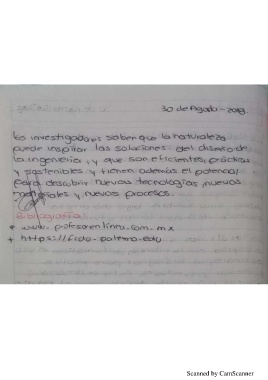 30 de Agosto - 2018.
los investigadores saben que la naturaleza
puede inspirar las soluciones del diseño de
la ingenieria, y que son eficientes, prácticas
y sostenibles y tienen además el potencial
para descubrir nuevas tecnologías, nuevos
materiales y nuevos procesos.
Bibliografía
www. profesorenlinea.com.mx
https://fido.palermo.edu
Scanned by CamScanner